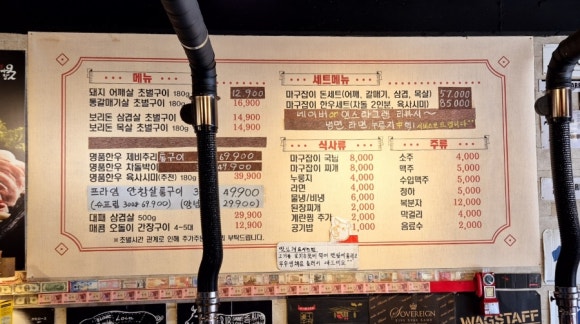 메뉴
돼지 어깨살 초벌구이 180g 12,900
통갈매기살 초벌구이 180g 16,900
보리돈 삼겹살 초벌 14,900
보리돈 목살 초벌구이 180g 14,900
명품한우 제비추리 구이 49,900
명품한우 차돌박이 49,900
명품한우 육사시미(추천) 180g 39,900
프라임 안창살 구이 49900
(수프림 300g 69.900) 29900)
대패 삼겹살 500g 29,900
매콤 오돌이 간장구이 4~5대 12,900
※초벌시간 관계로 인해 추가주문 부탁드립니다.
세트메뉴
마구잡이 돈세트(어깨, 갈매기, 삼겹, 목살) 57,000
마구잡이 한우세트(차돌 2인분, 육사시미) 85,000
네이버 or 인스타그램 리뷰시~
냉면, 라면, 누룽지 中 택1
식사류
마구잡이 국밥 8,000
마구잡이 찌개 8,000
누룽지 4,000
라면 4,000
물냉/비냉 6,000
된장찌개 2,000
계란찜 추가 2,000
공기밥 1,000
주류
소주 4,000
맥주 5,000
수입맥주 5,000
청하 5,000
복분자 12,000
막걸리 4,000
음료수 2,000
SOVEREIGN
WAGSTAFF
Loin